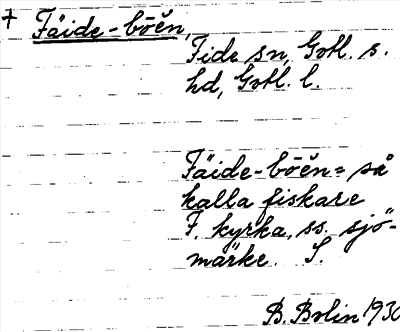 7 Fäide-böĕn,
Fide sn, Gotl. s.
hd, Gotl. l.
Fäide-böĕn = så
kalla fiskare
F. kyrka, ss. sjö-
märke. S.
B. Bolin 1930